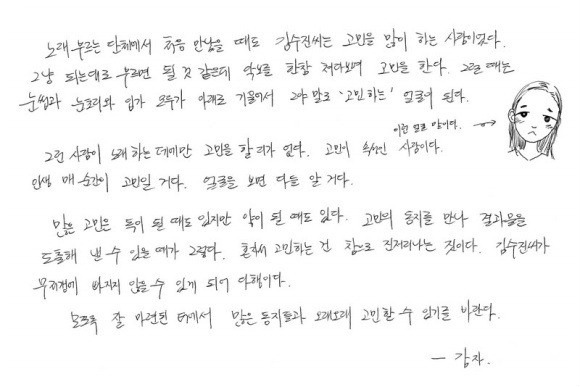 노래 부르는 단체에서 처음 만났을 때도 김수진씨는 고민을 많이 하는 사람이었다.
그냥 되는대로 부르면 될 것 같은데 악보를 한참 쳐다보며 고민을 한다. 그럴 때는
눈썹과 눈꼬리와 입가 모두가 아래로 기울어서 그야말로 '고민하는' 얼굴이 된다.
이런 얼굴 말이다. →
그런 사람이 노래하는 데에만 고민을 할 리가 없다. 고민이 속성인 사람이다.
인생 매 순간이 고민일 거다. 얼굴을 보면 다들 알 거다.
많은 고민은 독이 될 때도 있지만 약이 될 때도 있다. 고민의 동지를 만나 결과물을
도출해 낼 수 있을 때가 그렇다. 혼자서 고민하는 건 참으로 진저리나는 짓이다. 김수진씨가
무저갱에 빠지지 않을 수 있게 되어 다행이다.
모쪼록 잘 마련된 터에서 많은 동지들과 오래오래 고민할 수 있기를 바란다.
— 감자.